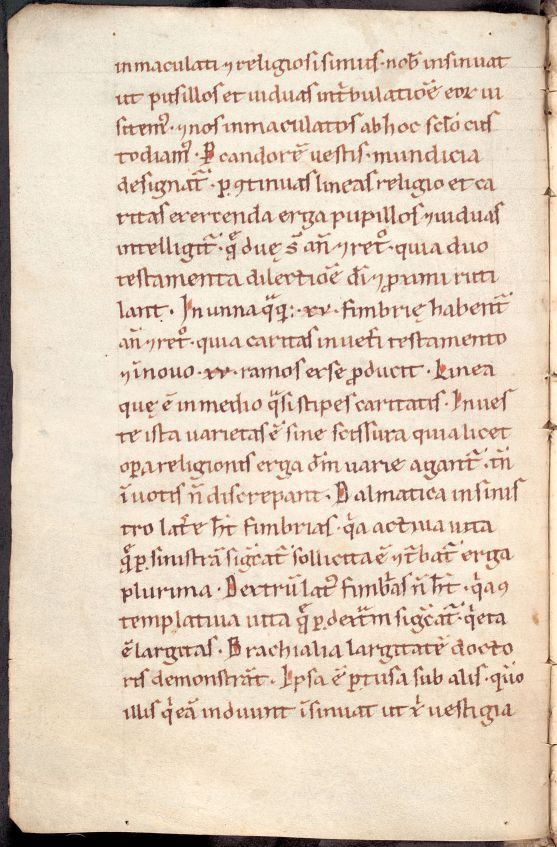 inmaculati ⁊ religiosi simus · nob̄ insinuat
ut pusillos et uiduas in t̄bulatiōe eoꝝ ui
sitem᷒ · ⁊ nos inmaculatos ab hoc sc̄lo cus
todiam᷒ · P candorē uestis · mundicia
designat᷑ · ꝑ ꝯtinuas lineas religio et ca
ritas exercenda erga pupillos ⁊ uiduas
intelligit᷑ · q̄ duę s̄ an̄ ⁊ ret̊ · quia duo
testamenta dilectiōē dī ⁊ ꝓximi ruti
lant · In unna q̄q; · xv · fimbrię habent᷑
an̄ ⁊ ret̊ · quia caritas in uet̄i testamento
⁊ ī nouo · xv · ramos ex se ꝓducit · Linea
quę ē in medio q̄si stipes caritatis · In ues
te ista uarietas ē sine scissura quia licet
oꝑa religionis erga dm̄ uarie agant᷑ · tn̄
ī uotis n̄ discrepant · Dalmatica in sinis
tro lat̄e ht̄ fimbrias · q̄a actiua uita
q̄ ꝑ sinistrā siḡcat᷑ sollicita ē ⁊ t᷑bat᷑ erga
plurima · Dextrū lat᷒ fimb̄as n̄ ht̄ · q̄a ꝯ
templatiua uita q̄ ꝑ dext̄m siḡcat᷑ · q̄eta
ē largitas · Brachialia largitatē docto
ris demonstrat̄ · Ipsa ē ꝑtusa sub alis · quo
illis q̄ eā induunt īsinuat ut x̄ı uestigia